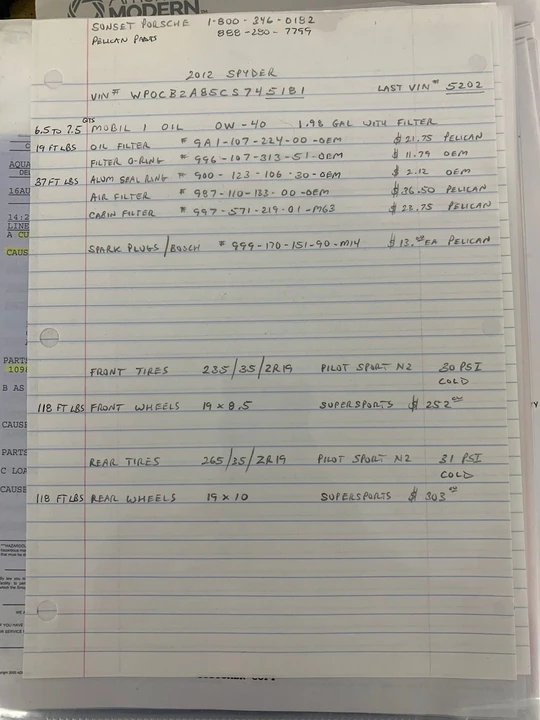 MODERN
SUNSET PORSCHE 1-800-346-0182
PELICAN PARTS 888-280-7799
2012 SPYDER
VIN # WPOCB2A85CS745181 LAST VIN # 5202
6.5 TO 7.5 QTS MOBIL 1 OIL 0W-40 1.98 GAL WITH FILTER
19 FT LBS OIL FILTER # 9A1-107-224-00-OEM $21.75 PELICAN
FILTER O-RING # 996-107-313-51-OEM $11.79 OEM
37 FT LBS ALUM SEAL RING # 900-123-106-30-OEM $2.12 OEM
AIR FILTER # 987-110-133-00-OEM $36.50 PELICAN
CABIN FILTER # 997-571-219-01-M63 $23.75 PELICAN
SPARK PLUGS/BOSCH # 999-170-151-90-M14 $13. EA PELICAN
FRONT TIRES 235/35/ZR19 PILOT SPORT N2 30 PSI
COLD
118 FT LBS FRONT WHEELS 19 x 8.5 SUPERSPORTS $252
REAR TIRES 265/35/ZR19 PILOT SPORT N2 31 PSI
COLD
118 FT LBS REAR WHEELS 19 x 10 SUPERSPORTS $303
AQUA
16AD
14:2
LINE
A CU
CAUS
PARTS
109
B AS
CAUSE
PARTS
C LOA
CAUSE